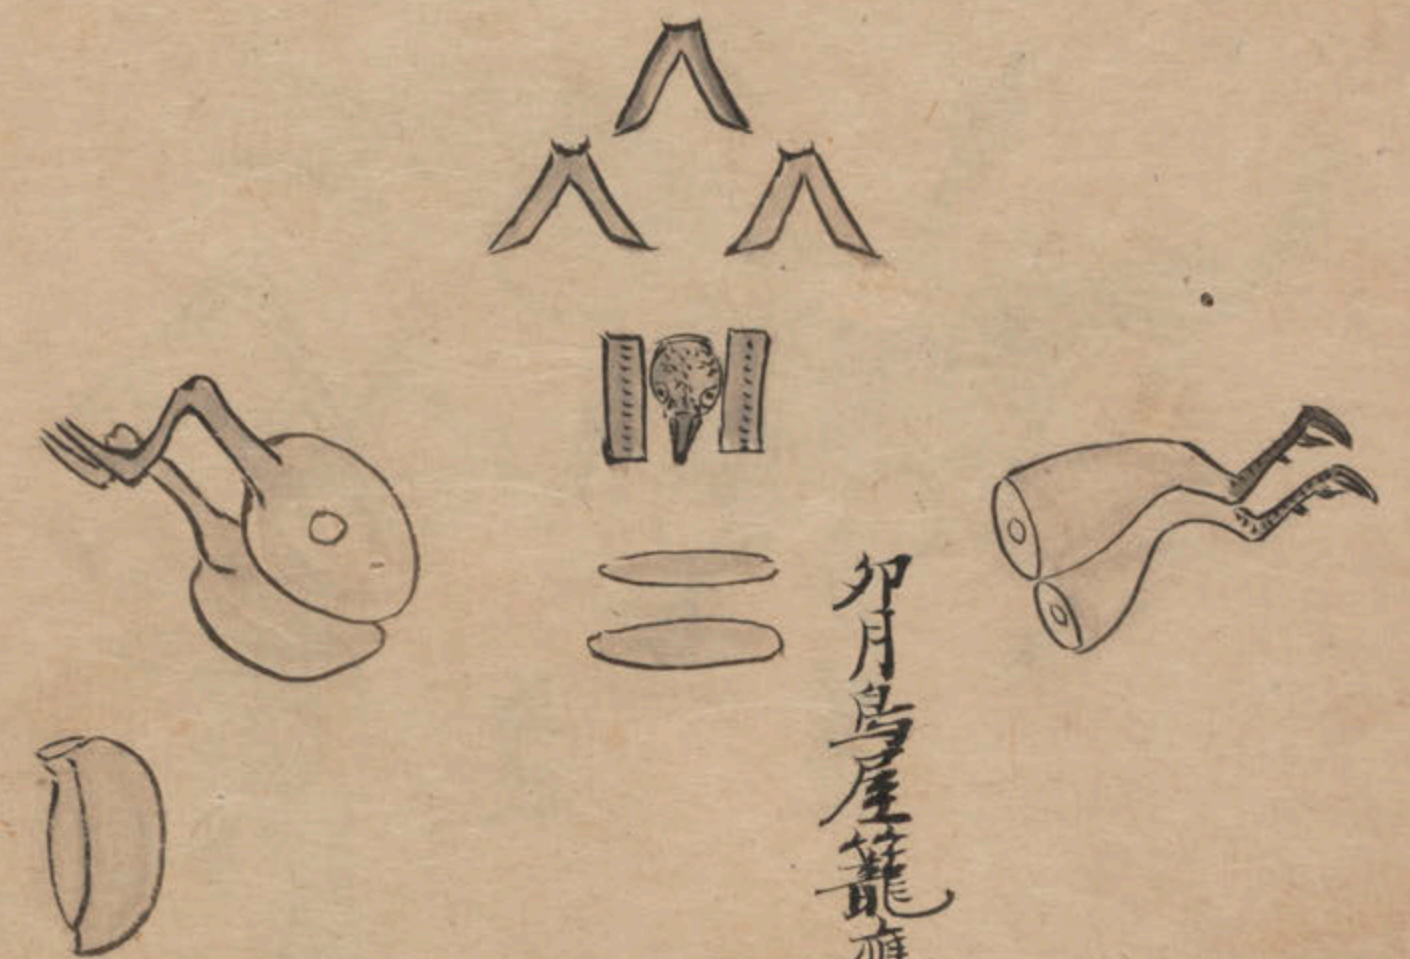 卯月鳥屋籠鷹